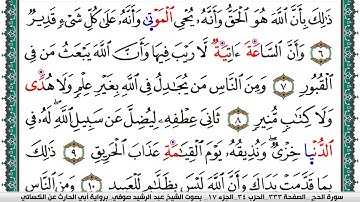 ذَٰلِكَ بِأَنَّ ٱللَّهَ هُوَ ٱلۡحَقُّ وَأَنَّهُۥ يُحۡيِ ٱلۡمَوۡتَىٰ وَأَنَّهُۥ عَلَىٰ كُلِّ شَيۡءٖ قَدِيرٞ
٦ وَأَنَّ ٱلسَّاعَةَ ءَاتِيَةٞ لَّا رَيۡبَ فِيهَا وَأَنَّ ٱللَّهَ يَبۡعَثُ مَن فِي
ٱلۡقُبُورِ ٧ وَمِنَ ٱلنَّاسِ مَن يُجَٰدِلُ فِي ٱللَّهِ بِغَيۡرِ عِلۡمٖ وَلَا هُدٗى
وَلَا كِتَٰبٖ مُّنِيرٖ ٨ ثَانِيَ عِطۡفِهِۦ لِيُضِلَّ عَن سَبِيلِ ٱللَّهِۖ لَهُۥ فِي
ٱلدُّنۡيَا خِزۡيٞۖ وَنُذِيقُهُۥ يَوۡمَ ٱلۡقِيَٰمَةِ عَذَابَ ٱلۡحَرِيقِ ٩ ذَٰلِكَ
بِمَا قَدَّمَتۡ يَدَاكَ وَأَنَّ ٱللَّهَ لَيۡسَ بِظَلَّٰمٖ لِّلۡعَبِيدِ ١٠ وَمِنَ ٱلنَّاسِ
سورة الحج الصفحة ٣٣٣ الحزب ٣٤ الجزء ١٧ بصوت الشيخ عبد الرشيد صوفي برواية أبي الحارث عن الكسائي